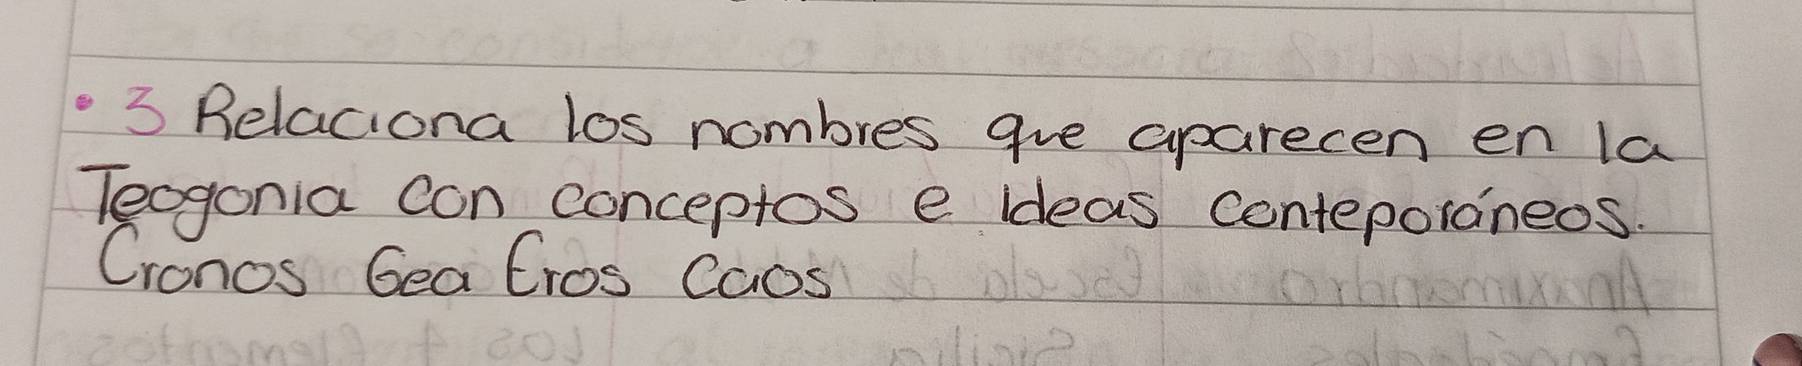 • 3 Relaciona los nombres que aparecen en la
Teogonia con conceptos e ideas conteporáneos.
Cronos Gea Eros Caos